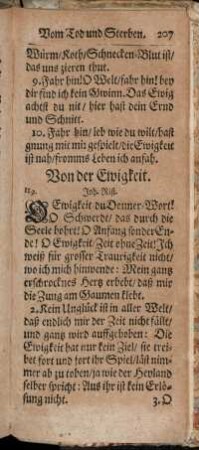 Vom Tod und Sterben. 207
Würm/Koth/Schnecken-Blut ist/
das uns zieren thut.
9. Fahr hin! O Welt/fahr hin! bey
dir find ich kein Gwinn. Das Ewig
achtst du nit/ hier hast dein Ernd
und Schnitt.
10. Fahr hin/leb wie du wilt/hast
gnung mit mir gespielt/die Ewigkeit
ist nah/fromms Leben ich anfah.
Von der Ewigkeit.
119. Joh. Rist.
O Ewigkeit du Donner-Wort!
O Schwerdt/ das durch die
Seele bohrt! O Anfang sonder En-
de! O Ewigkeit Zeit ohne Zeit! Jch
weiß für grosser Traurigkeit nicht/
wo ich mich hinwende: Mein gantz
erschrocknes Hertz erbebt/ daß mir
die Zung am Gaumen klebt.
2. Kein Unglück ist in aller Welt/
daß endlich mit der Zeit nicht fällt/
und gantz wird auffgehaben: Die
Ewigkeit hat nur kein Ziel/ sie trei-
bet fort und fort ihr Spiel/läst nim-
mer ab zu toben/ja wie der Heyland
selber spricht: Aus ihr ist kein Erlö-
sung nicht. 3. O